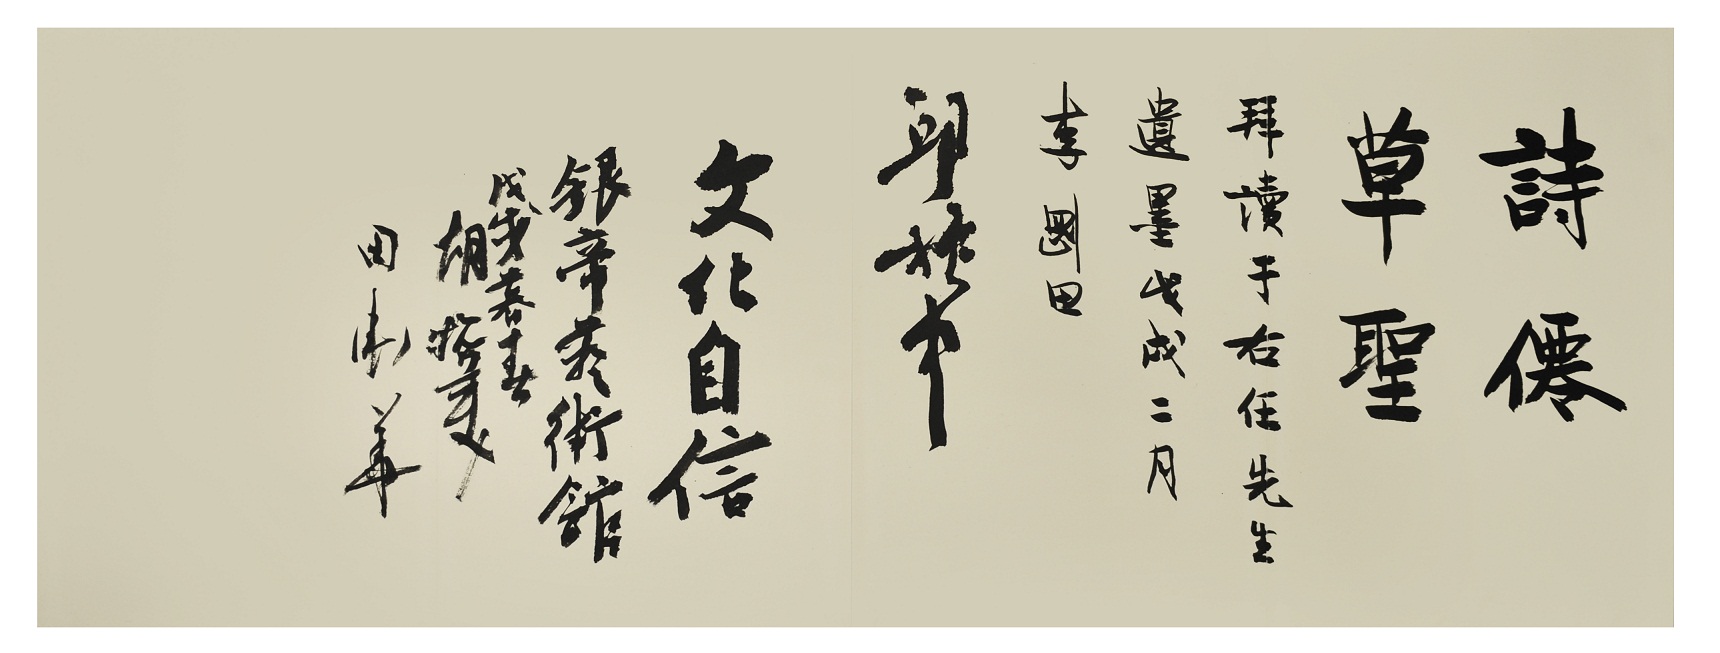 詩僊
草聖
拜讀于右任先生
遺墨戊戌二月
李剛田
邱振中
文化自信
銀帝藝術館
戊戌暮春
胡抗美
田